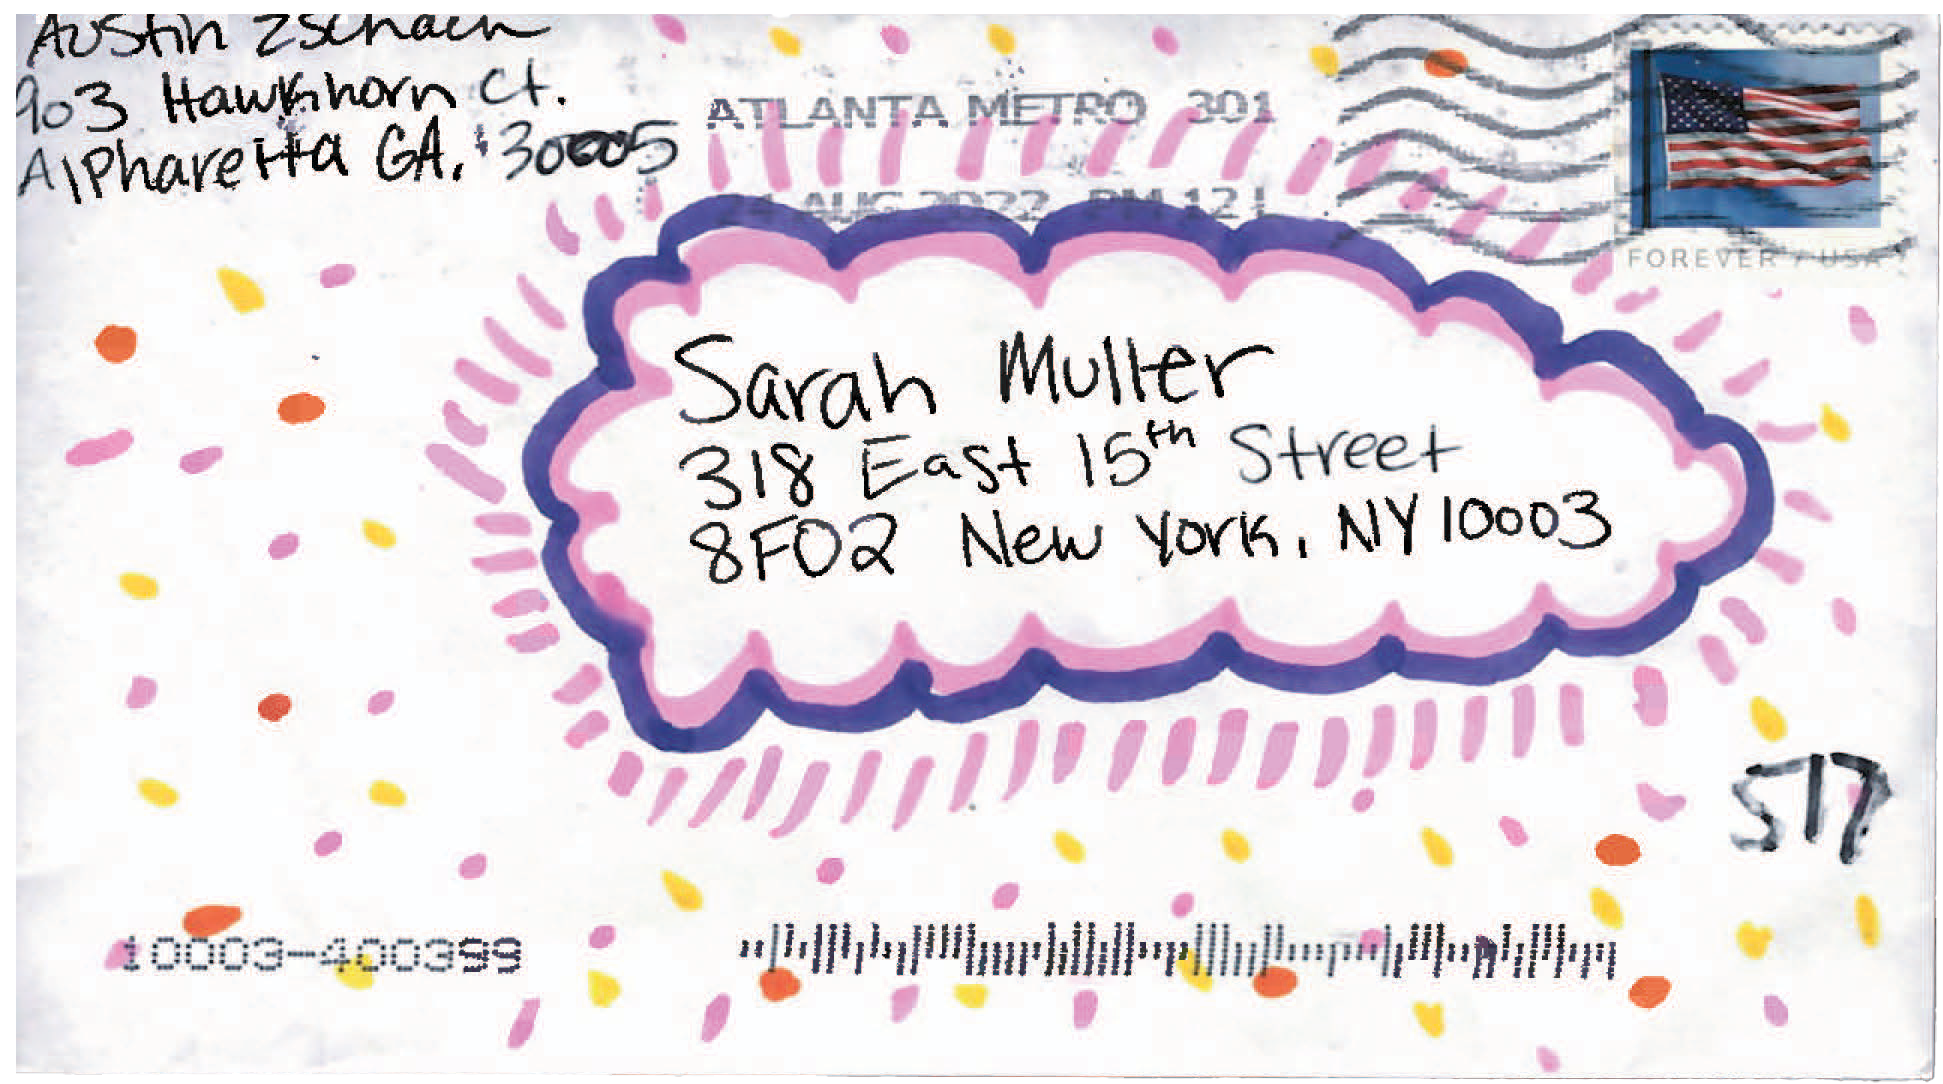 Austin Zschach
903 Hawkhorn Ct.
Alpharetta GA. 30005
ATLANTA METRO 301
AUG 2022 PM 12 L
FOREVER / USA
Sarah Muller
318 East 15th Street
8F02 New York, NY 10003
517
10003-400399